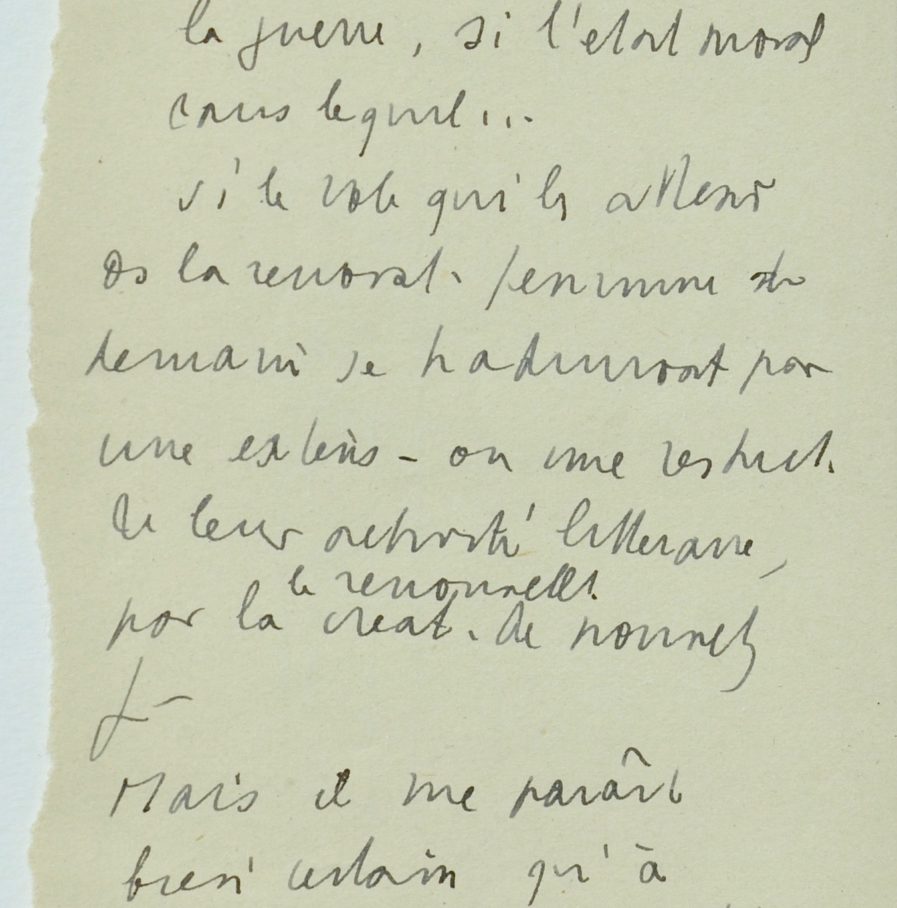 la guerre, si l'état moral
sous lequel...
si le rôle qui les attend
ds la renovat.
demain se traduiront par
une extens - ou une restrict.
de leur activité littéraire,
le renouvellt.
par la creat. de nouvels
Mais il me paraît
bien certain qu'à